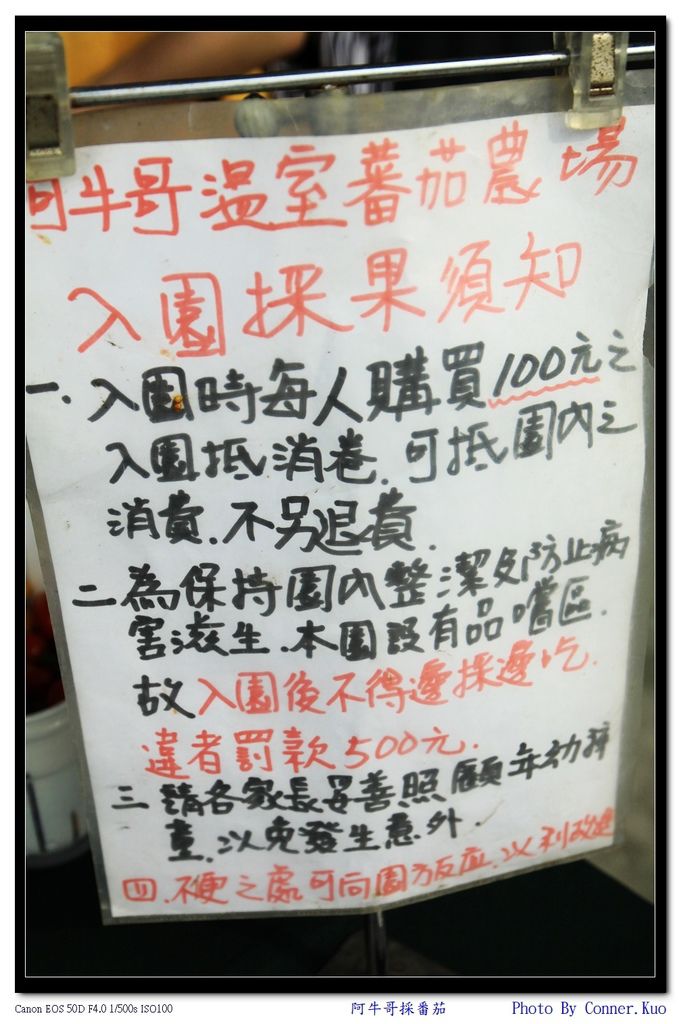 阿牛哥溫室蕃茄農場
入園採果須知
一.入園時每人購買100元之
入園抵消卷.可抵園內之
消費.不另退費.
二為保持園內整潔及防止病
害滋生.本園設有品嚐區.
故入園後不得邊採邊吃.
違者罰款500元.
三請各家長妥善照顧年幼孩
童.以免發生意外.
四.不便之處可向園方反應.以利改進
Canon EOS 50D F4.0 1/500s ISO100
阿牛哥採番茄
Photo By Conner.Kuo